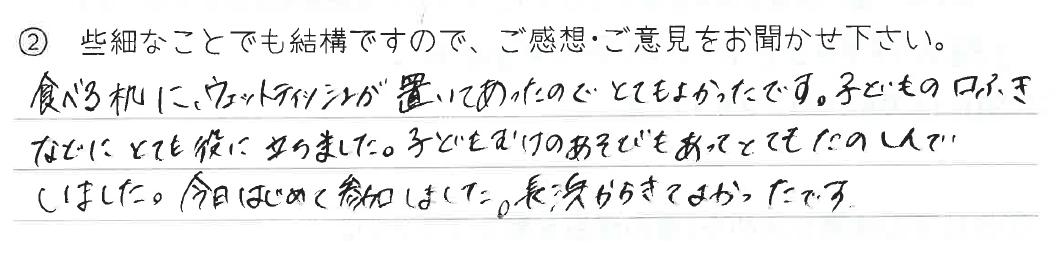 ② 些細なことでも結構ですので、ご感想・ご意見をお聞かせ下さい。
食べる机に、ウェットティッシュが置いてあったのでとてもよかったです。子どもの口ふき
などにとても役に立ちました。子どもむけのあそびもあってとてもたのしんで
しました。今日はじめて参加しました。長浜からきてよかったです